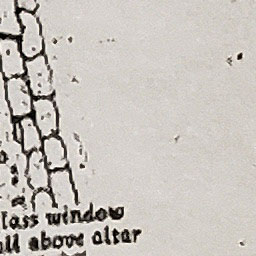 lass window
all above altar